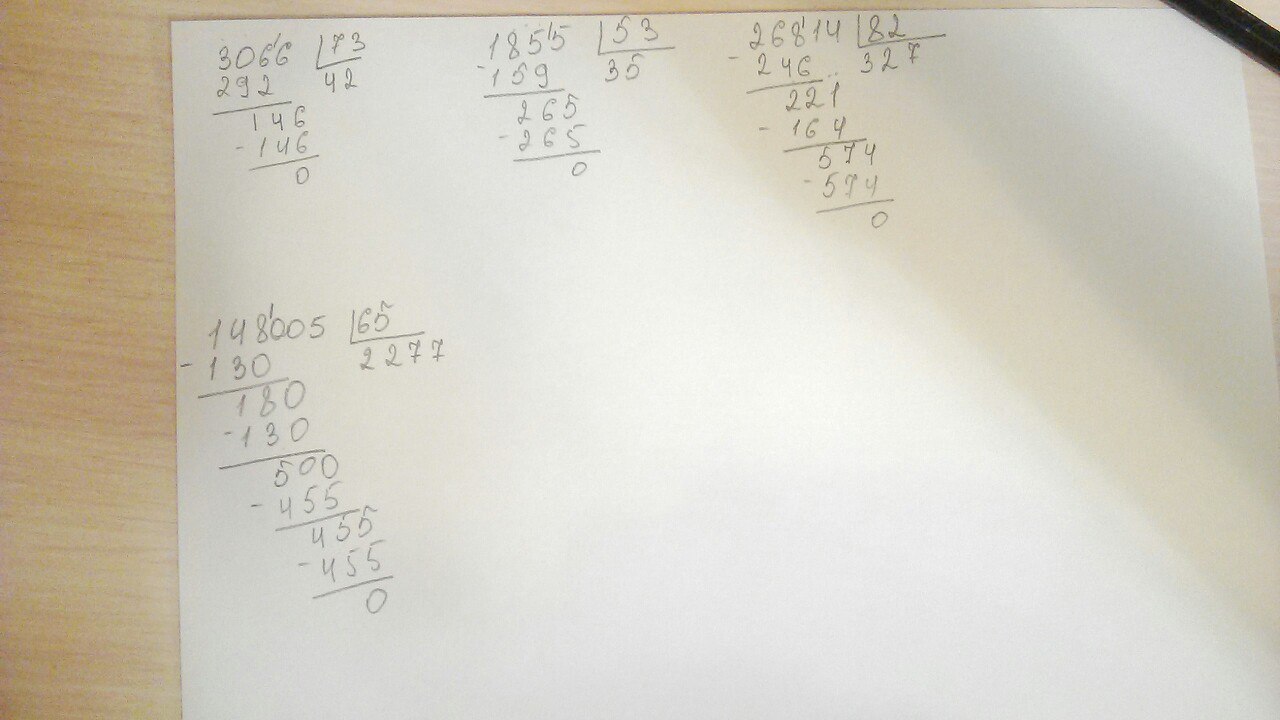 3066 73
292 42
146
- 146
0
1855 53
- 159 35
265
- 265
0
26814 82
- 246 327
221
- 164
574
- 574
0
148005 65
- 130 2277
180
- 130
500
- 455
455
- 455
0